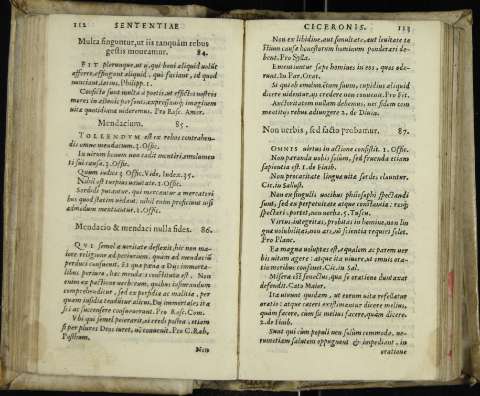 112 SENTENTIAE
Multa finguntur, ut iis tanquàm rebus
gestis moueamur. 84.
FIT plerunque, ut ij, qui boni aliquid uolũt
afferre, affingant aliquid, quo faciant, id quod
nunciant, lætius. Philipp. 1.
Conficta sunt multa à poetis, ut effictos nostros
mores in alienis personis, expressamq; imaginem
uitæ quotidianæ uideremus. Pro Rosc. Amer.
Mendacium. 85.
TOLLENDVM est ex rebus contrahen-
dis omne mendacium. 3. Offic.
In uirum bonum non cadit mentiri, emolumen
ti sui causa. 3. Offic.
Quum iudex 3. Offic. Vide, Iudex. 35.
Nihil est turpius uanitate. 1. Offic.
Sordidi putantur, qui mercantur à mercatori
bus quod statim uendant. nihil enim proficiunt nisi
admodum mentiantur. 1. Offic.
Mendacio & mendaci nulla fides. 86.
QVI semel à ueritate deflexit, hic non ma-
iore religione ad periurium, quàm ad mendaciũ
perduci consueuit. Et quæ pœna à Dijs immorta-
libus periuro, hæc mendaci constituta est. Non
enim ex pactione uerborum, quibus iusiurandum
comprehenditur, sed ex perfidia ac malitia, per
quam insidiæ tenduntur alicui, Dij immortales ira
sci ac succensere consueuerunt. Pro Rosc. Com.
Vbi quis semel peierarit, ei credi postea, etiam
si per plures Deos iuret, nõ conuenit. Pro C. Rab.
Posthum.
Non
CICERONIS. 113
Non ex libidine, aut simultate, aut leuitate te
stium causæ honestorum hominum ponderari de-
bent. Pro Sylla.
Ementiuntur sæpe homines in eos, quos ode-
runt. In Par. Orat.
Si qui ob emolumentum suum, cupidius aliquid
dicere uidentur, ijs credere non conuenit. Pro Fõt.
Auctoritatem nullam debemus, nec fidem com
mentitijs rebus adiungere. 2. de Diuin.
Non uerbis, sed facto probamur. 87.
OMNIS uirtus in actione consistit. 1. Offic.
Non paranda nobis solùm, sed fruenda etiam
sapientia est. 1. de Finib.
Non procacitate linguæ uita sordes eluuntur.
Cic. in Salust.
Non ex singulis uocibus philosophi spectandi
sunt, sed ex perpetuitate atque constantia: resq́;
spectari oportet, non uerba. 5. Tuscu.
Virtus, integritas, probitas in homine, non lin
guæ uolubilitas, non ars, nõ scientia requiri solet.
Pro Planc.
Ea magna uoluptas est, æqualem ac parem uer
bis uitam agere: atque ita uiuere, ut omnis ora-
tio moribus consonet. Cic. in Sal.
Misera est senectus, quæ se oratione duntaxat
defendit. Cato Maior.
Ita uiuunt quidam, ut eorum uita refellatur
oratio: atque cæteri existimantur dicere melius,
quàm facere, cùm sic melius facere, quàm dicere.
2. de Finib.
Sunt qui cùm populi non solùm commoda, ue-
rumetiam salutem oppugnent & impediant, in
oratione